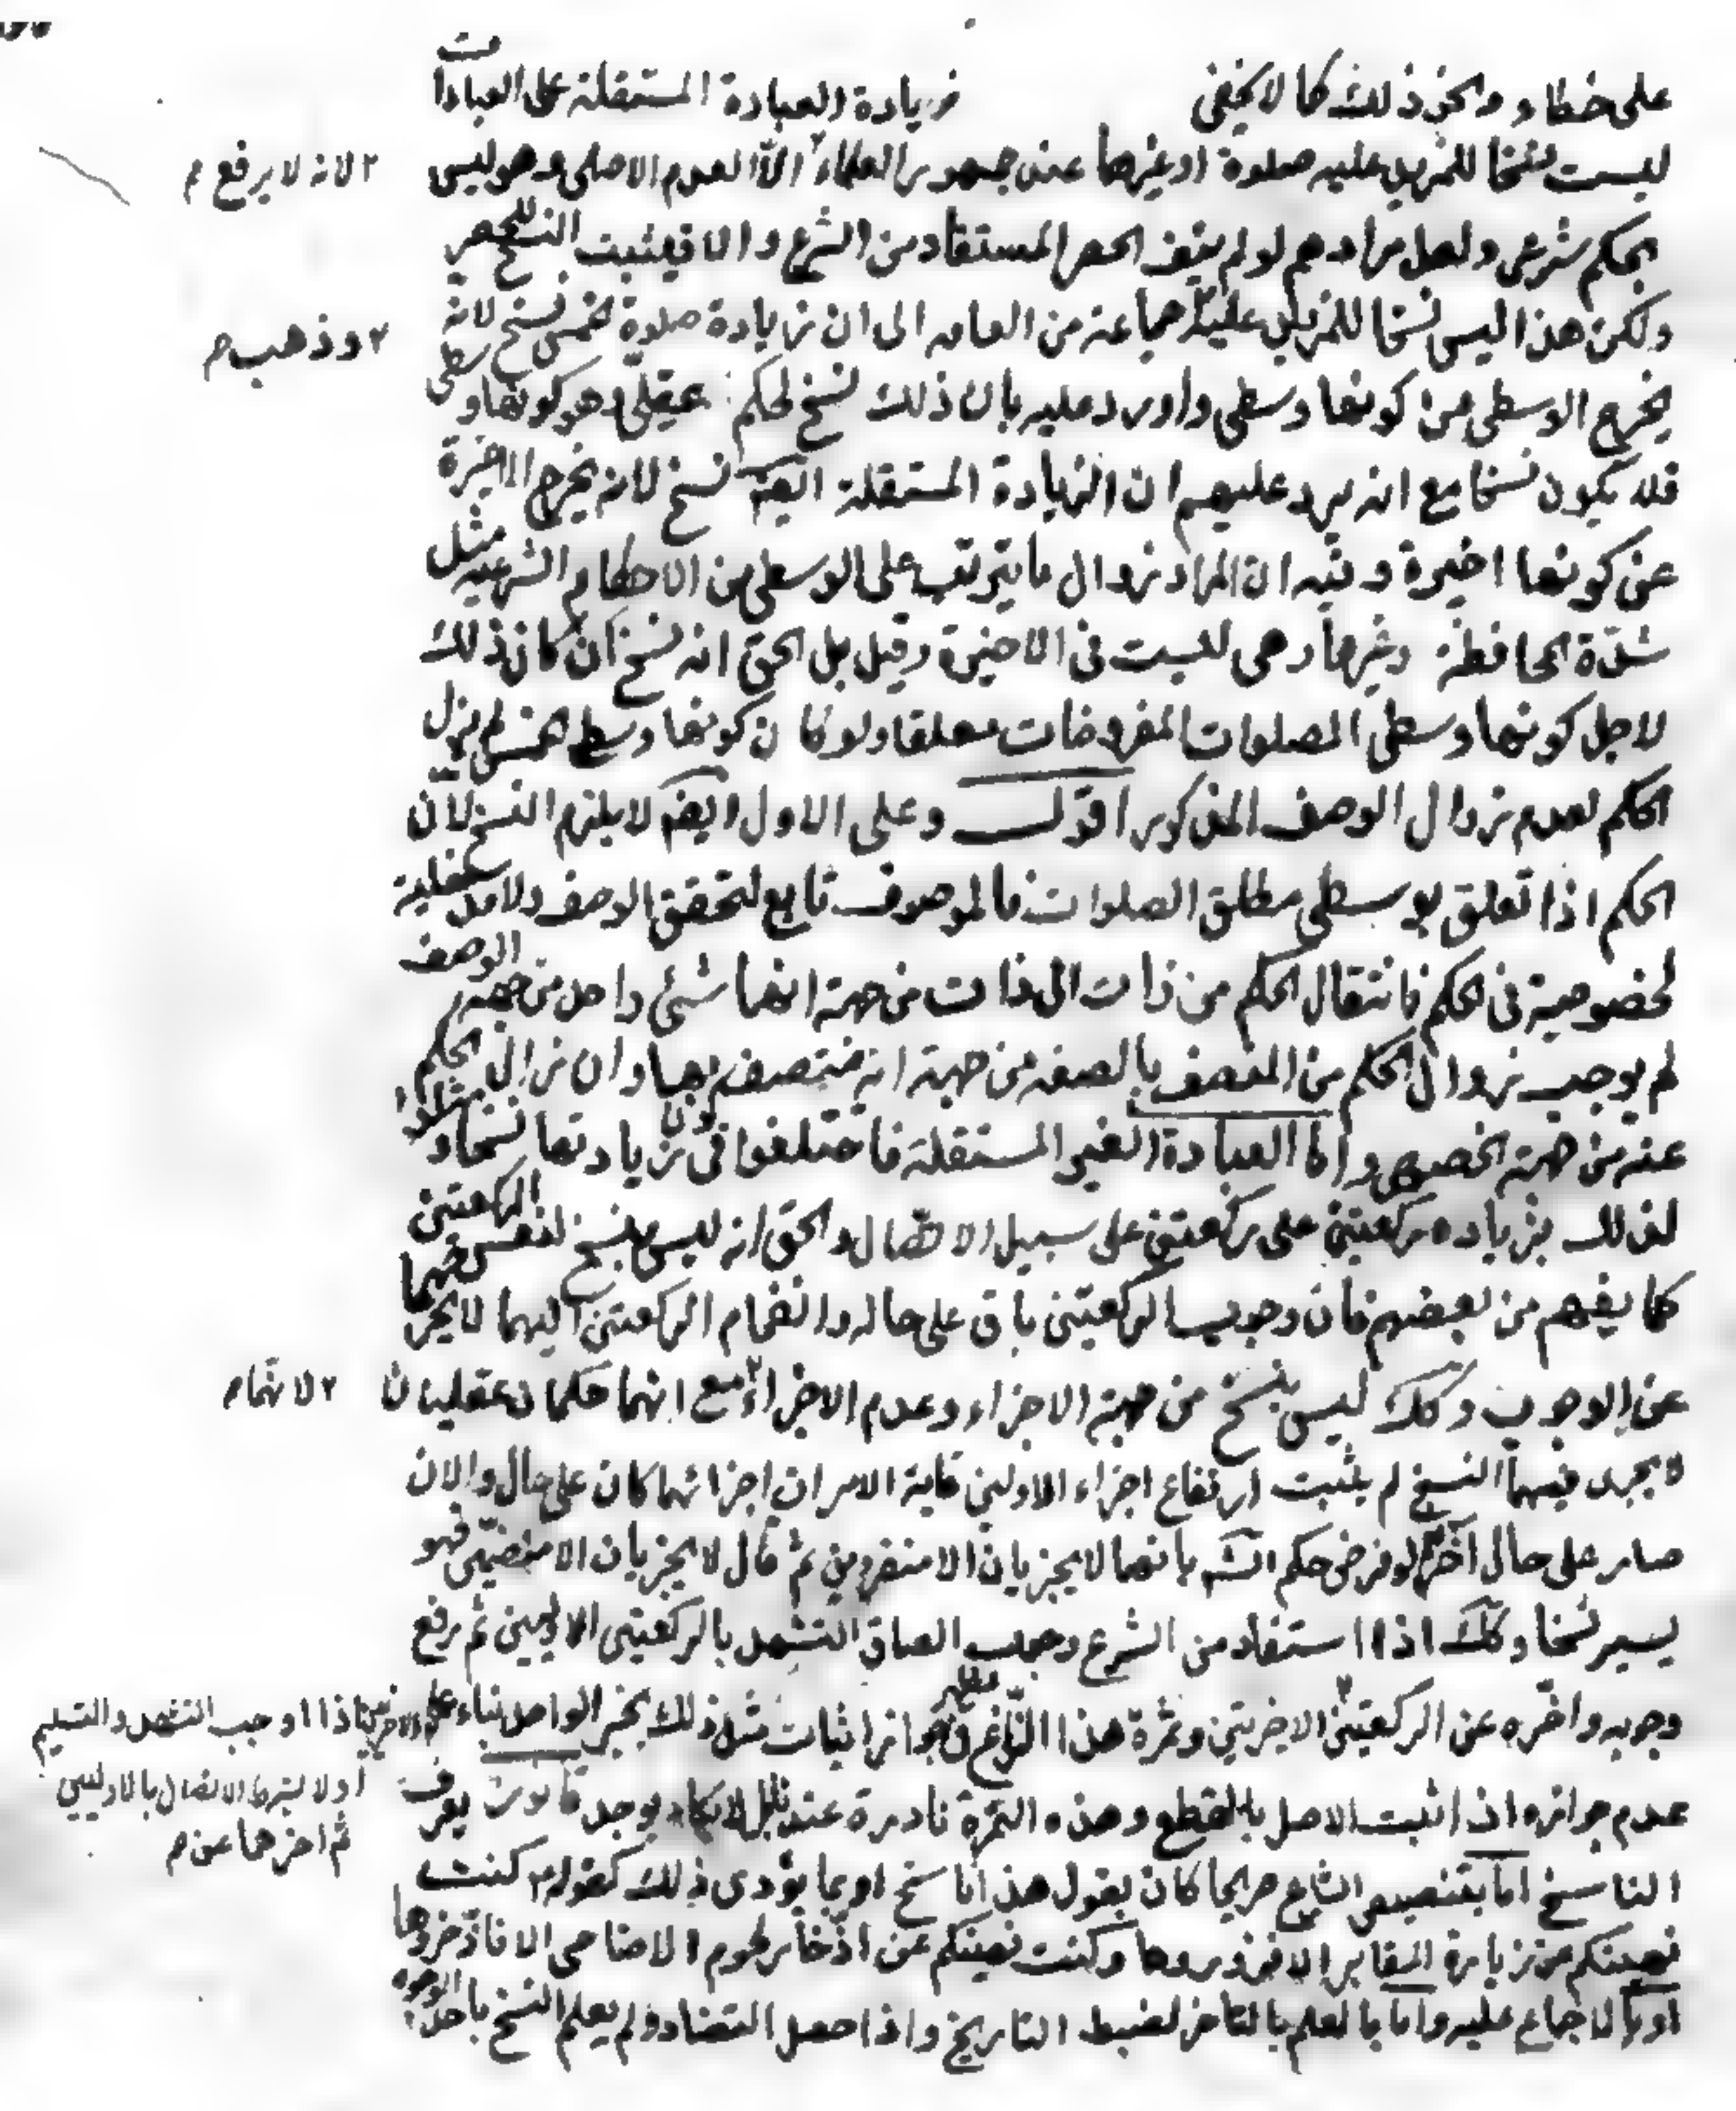 على خطاء ونحو ذلك كما لا يخفى زيادة العبادة المستقلة على العبادات
ليست نسخا للمزيد عليه صلوة او غيرها عند جمهور العلماء ٢ الا العدم الاصلى وهو ليس
٢ لانه لا يرفع م
بحكم شرعى ولعل مرادهم لو لم ينف الحصر المستفاد من الشرع والا فيثبت النسخ للحصر
ولكن هذا ليس نسخا للمزيد عليه ٢ جماعة من العامه الى ان زيادة صلوة لخمس نسخ لانه
٢ وذهب م
يخرج الوسطى من كونها وسطى واورد عليه بان ذلك نسخ لحكم عقلى وهو كونها وسطى
فلا يكون نسخا مع انه يرد عليهم ان الزيادة المستقلة ايضا نسخ لانه يخرج الاخيرة
عن كونها اخيرة وفيه ان المراد زوال ما يترتب على الوسطى من الاحكام الشرعيه مثل
شدّة المحافظة وغيرها وهى ليست فى الاخيرة وقيل بل الحق انه نسخ ان كان ذلك
لاجل كونها وسطى الصلوات المفروضات مطلقا ولو كان كونها وسطى خمس لم يزل
الحكم لعدم زوال الوصف المذكور اقول وعلى الاول ايضا لا يلزم النسخ لان
الحكم اذا تعلق بوسطى مطلق الصلوات فالموصوف تابع لتحقق الوصف ولا مدخلية
لخصوصية فى الحكم فانتقال الحكم من ذات الى ذات من جهة انهما شئ واحد من جهة الوصف
لم يوجب زوال الحكم من المتصف بالصفة من جهة انه متصف بها وان زال الحكم
عنه من جهة الخصوص واما العبادة الغير المستقلة فاختلفوا فى كون زيادتها نسخا ومثلوا
لذلك بزيادة ركعتين على ركعتين على سبيل الاتصال والحق انه ليس بنسخ لنفس الركعتين
كما يفهم من بعضهم فان وجوب الركعتين باق على حاله وانضمام الركعتين اليهما لا يخرجهما
عن الوجوب وكذلك ليس بنسخ من جهة الاجزاء وعدم الاجزاء ٢ مع انهما حكمان عقليان
٢ لانهما م
لا يجرى فيهما النسخ لم يثبت ارتفاع اجزاء الاولين غاية الامر ان اجزائهما كان على حال والان
صار على حال آخر نعم لو فرض حكم الشارع بانهما لا يجزيان الا منفردين ثم قال لا يجزيان الا منضمين فهو
يصير نسخا وكذلك اذا استفاد من الشرع وجوب الصاق التشهد بالركعتين الاوليين ثم رفع
وجوبه واخّره عن الركعتين ٢ الاخيرتين وثمرة هذا النزاع تظهر فى جواز اثبات مثل ذلك بخبر الواحد بناء على
الاخيرتين اذا اوجب التشهد والتسليم
اولا بشرط الاتصال بالاوليين
ثم اخرهما عن م
عدم جوازه اذا ثبت الاصل بالقطع وهذه الثمرة نادرة عندنا بل لا يكاد يوجد قانون يعرف
الناسخ اما بتنصيص الشارع صريحا كان يقول هذا ناسخ او بما يؤدى ذلك كقوله م كنت
نهيتكم عن زيارة المقابر الا فزوروها وكنت نهيتكم عن ادّخار لحوم الاضاحى الا فادّخروها
او بالاجماع عليه واما بالعلم بالتاخر لضبط التاريخ واذا حصل التضاد ولم يعلم النسخ باحد الوجوه